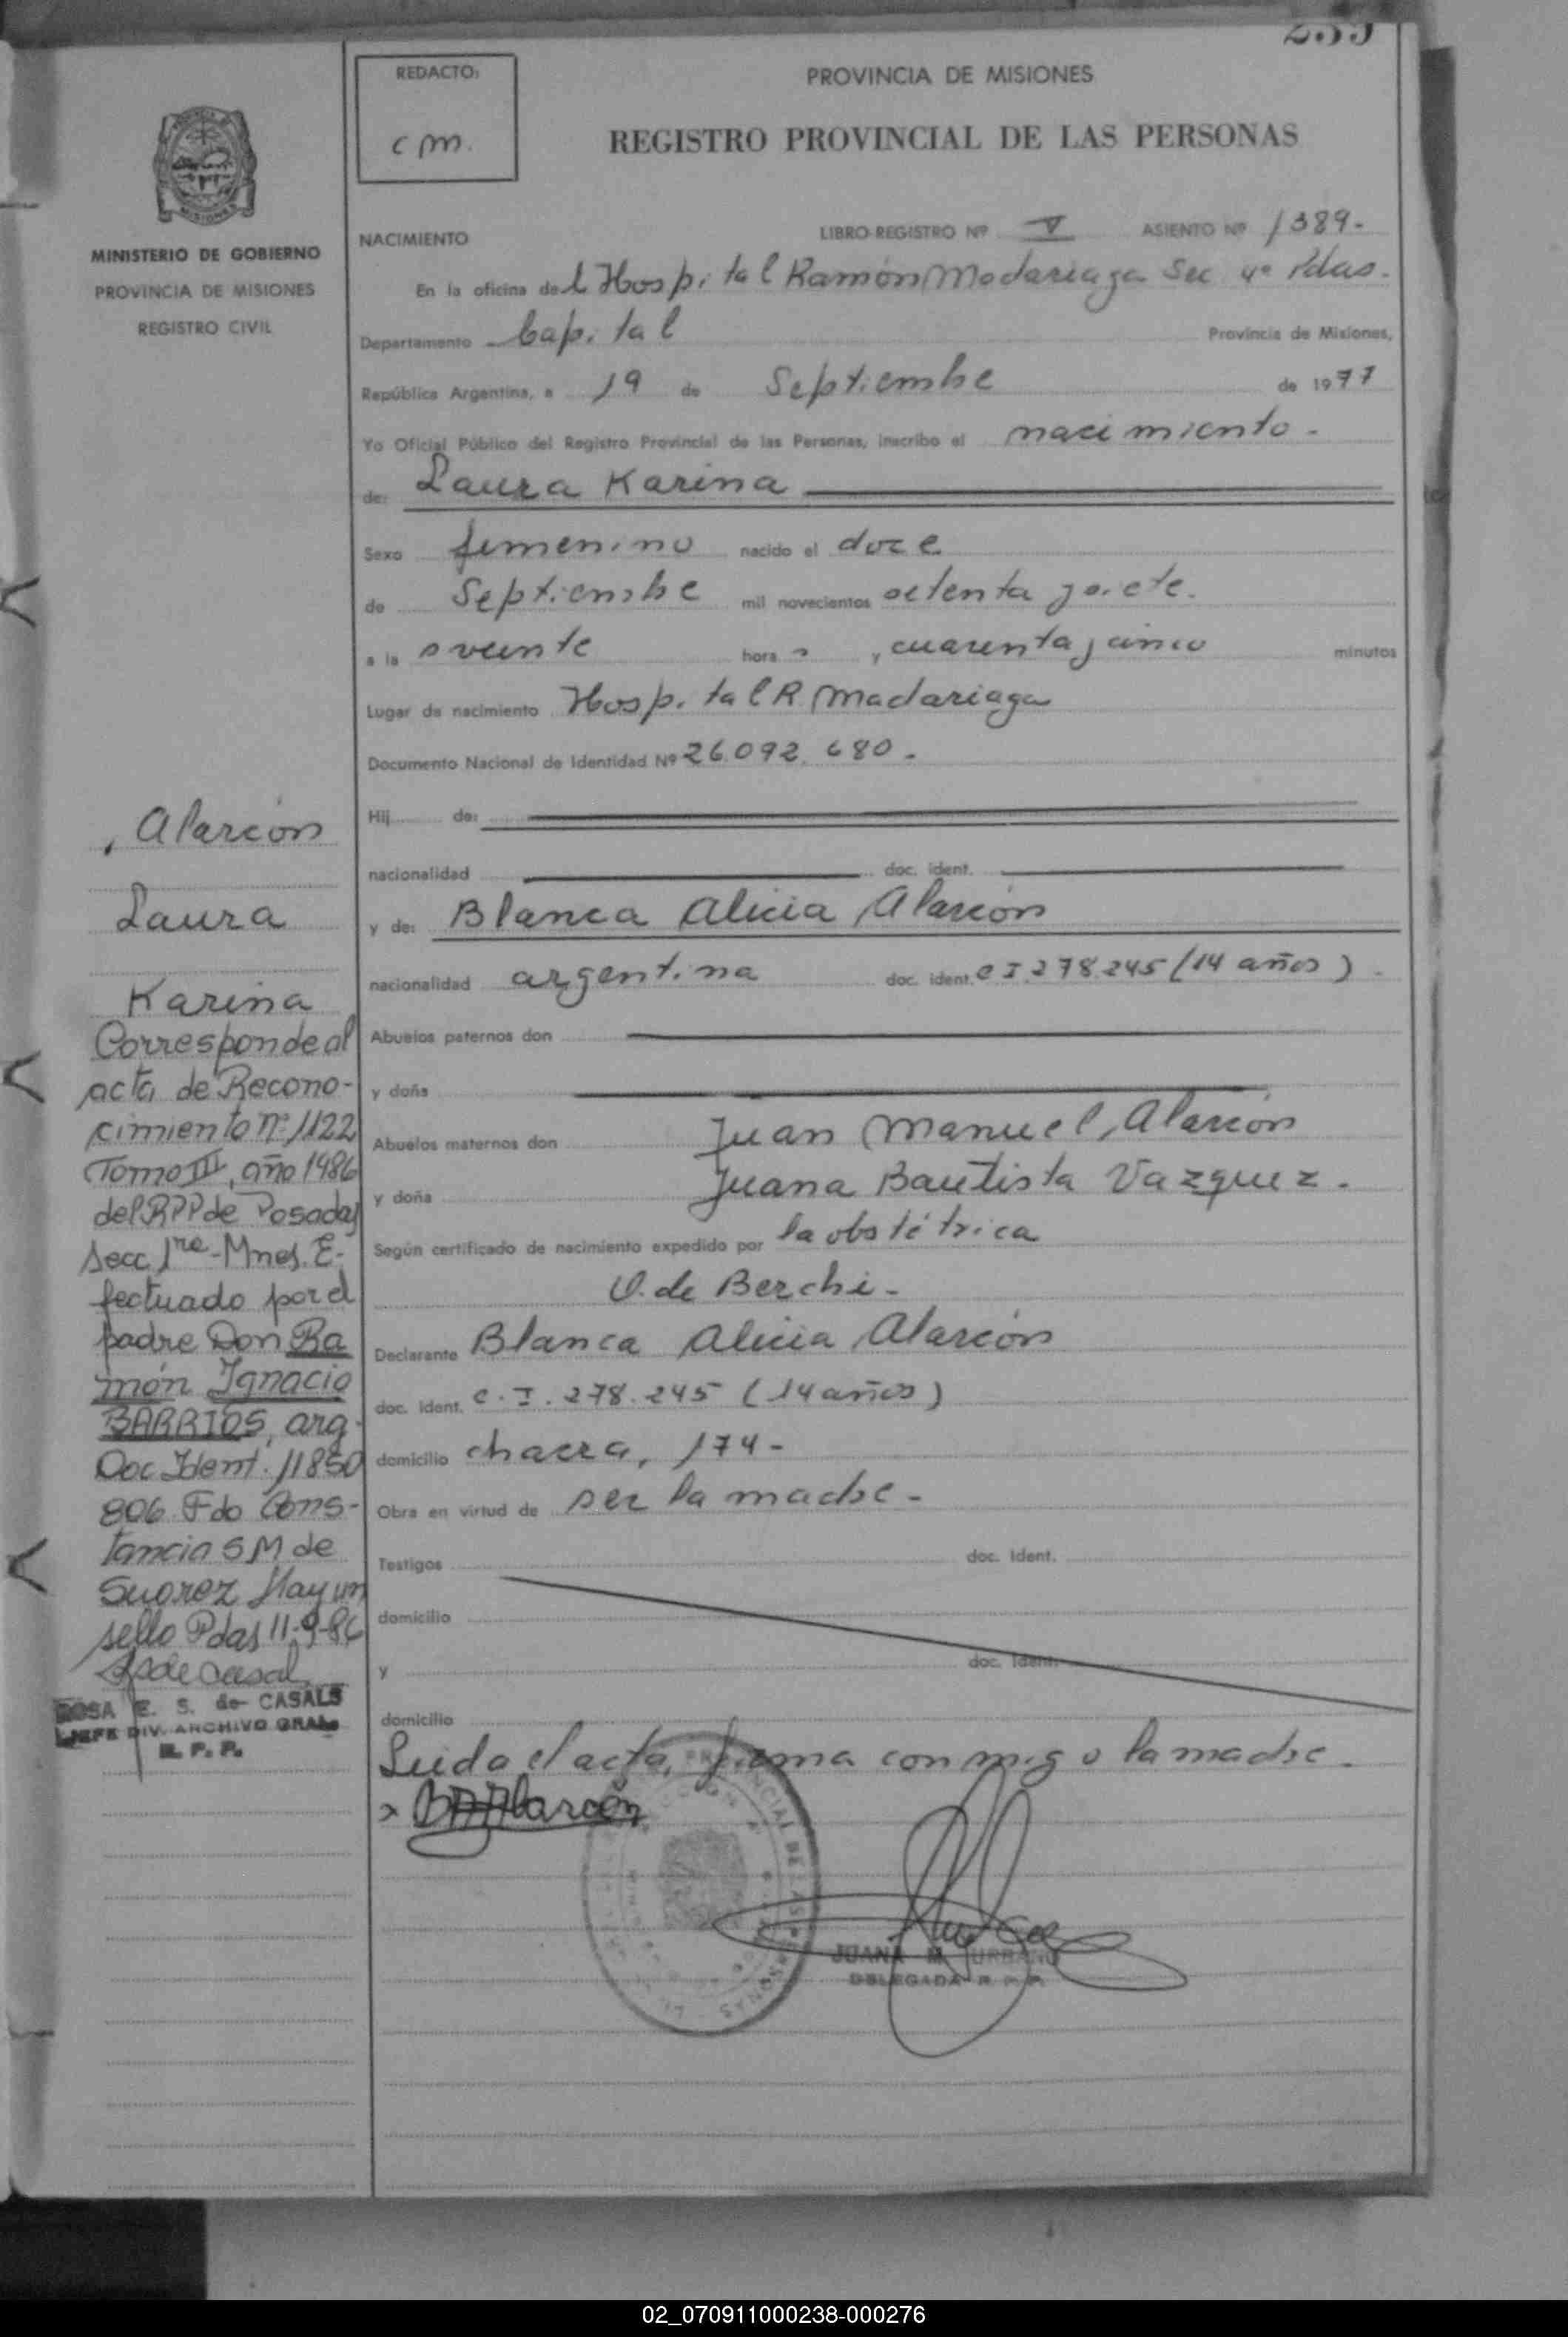 239
REDACTO:
cm.
PROVINCIA DE MISIONES
REGISTRO PROVINCIAL DE LAS PERSONAS
MINISTERIO DE GOBIERNO
PROVINCIA DE MISIONES
REGISTRO CIVIL
NACIMIENTO LIBRO-REGISTRO Nº V ASIENTO Nº 1389-
En la oficina del Hospital Ramón Madariaga Sec 4ª Pdas.
Departamento Capital Provincia de Misiones,
República Argentina, a 19 de Septiembre de 1977
Yo Oficial Público del Registro Provincial de las Personas, inscribo el nacimiento.
de: Laura Karina
Sexo femenino nacido el doce
de Septiembre mil novecientos setenta y siete.
a la s veinte hora s y cuarenta y cinco minutos
Lugar de nacimiento Hospital R Madariaga
Documento Nacional de Identidad Nº 26.092.680.
Hij de:
nacionalidad doc. ident.
y de: Blanca Alicia Alarcón
nacionalidad argentina doc. ident. C I 278.245 (14 años).
Abuelos paternos don
y doña
Abuelos maternos don Juan Manuel Alarcón
y doña Juana Bautista Vazquez.
Según certificado de nacimiento expedido por la obstétrica
O. de Berchi-
Declarante Blanca Alicia Alarcón
doc. ident. C. I. 278.245 (14 años)
domicilio chacra, 174-
Obra en virtud de ser la madre-
Testigos doc. Ident.
domicilio
y doc. Ident.
domicilio
Leida el acta, firma conmigo la madre.
x BAAlarcón
JUANA M. URBANO
DELEGADA R. P. P.
Alarcón
Laura
Karina
Corresponde al
acta de Recono-
cimiento nº 1122
Tomo III, año 1986
del RPP de Posadas
Secc 1ra-Mnes. E-
fectuado por el
padre Don Ra
món Ignacio
BARRIOS, arg.
Doc Ident. 11850
806. Fdo Cons-
tancia S M de
Suarez Hay un
sello Pdas 11-9-86
ROSA E. S. de CASALS
JEFE DIV. ARCHIVO GRAL.
R. P. P.
02_070911000238-000276